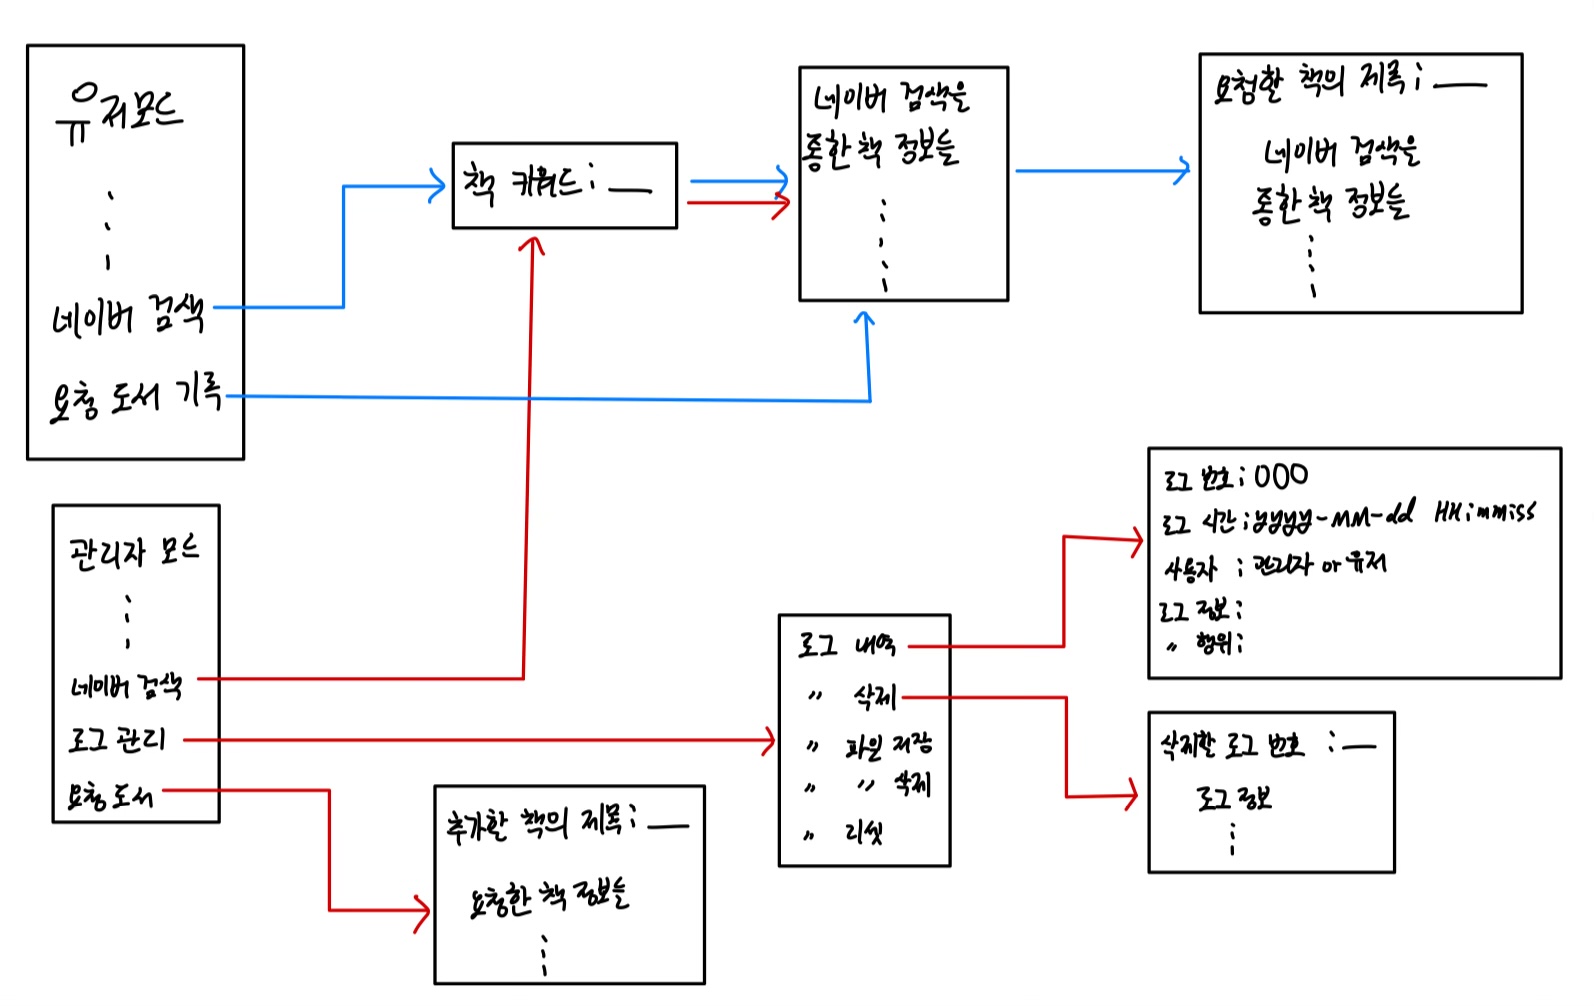 유저모드
네이버 검색
요청 도서 기록
책 키워드 : __
네이버 검색을
통한 책 정보들
요청할 책의 제목 : __
네이버 검색을
통한 책 정보들
관리자 모드
네이버 검색
로그 관리
요청 도서
추가할 책의 제목 : __
요청한 책 정보들
로그 내역
〃 삭제
〃 파일 저장
〃 〃 삭제
〃 리셋
로그 번호 : 000
로그 시간 : yyyy-MM-dd HH:mm:ss
사용자 : 관리자 or 유저
로그 정보 :
〃 행위 :
삭제할 로그 번호 : __
로그 정보